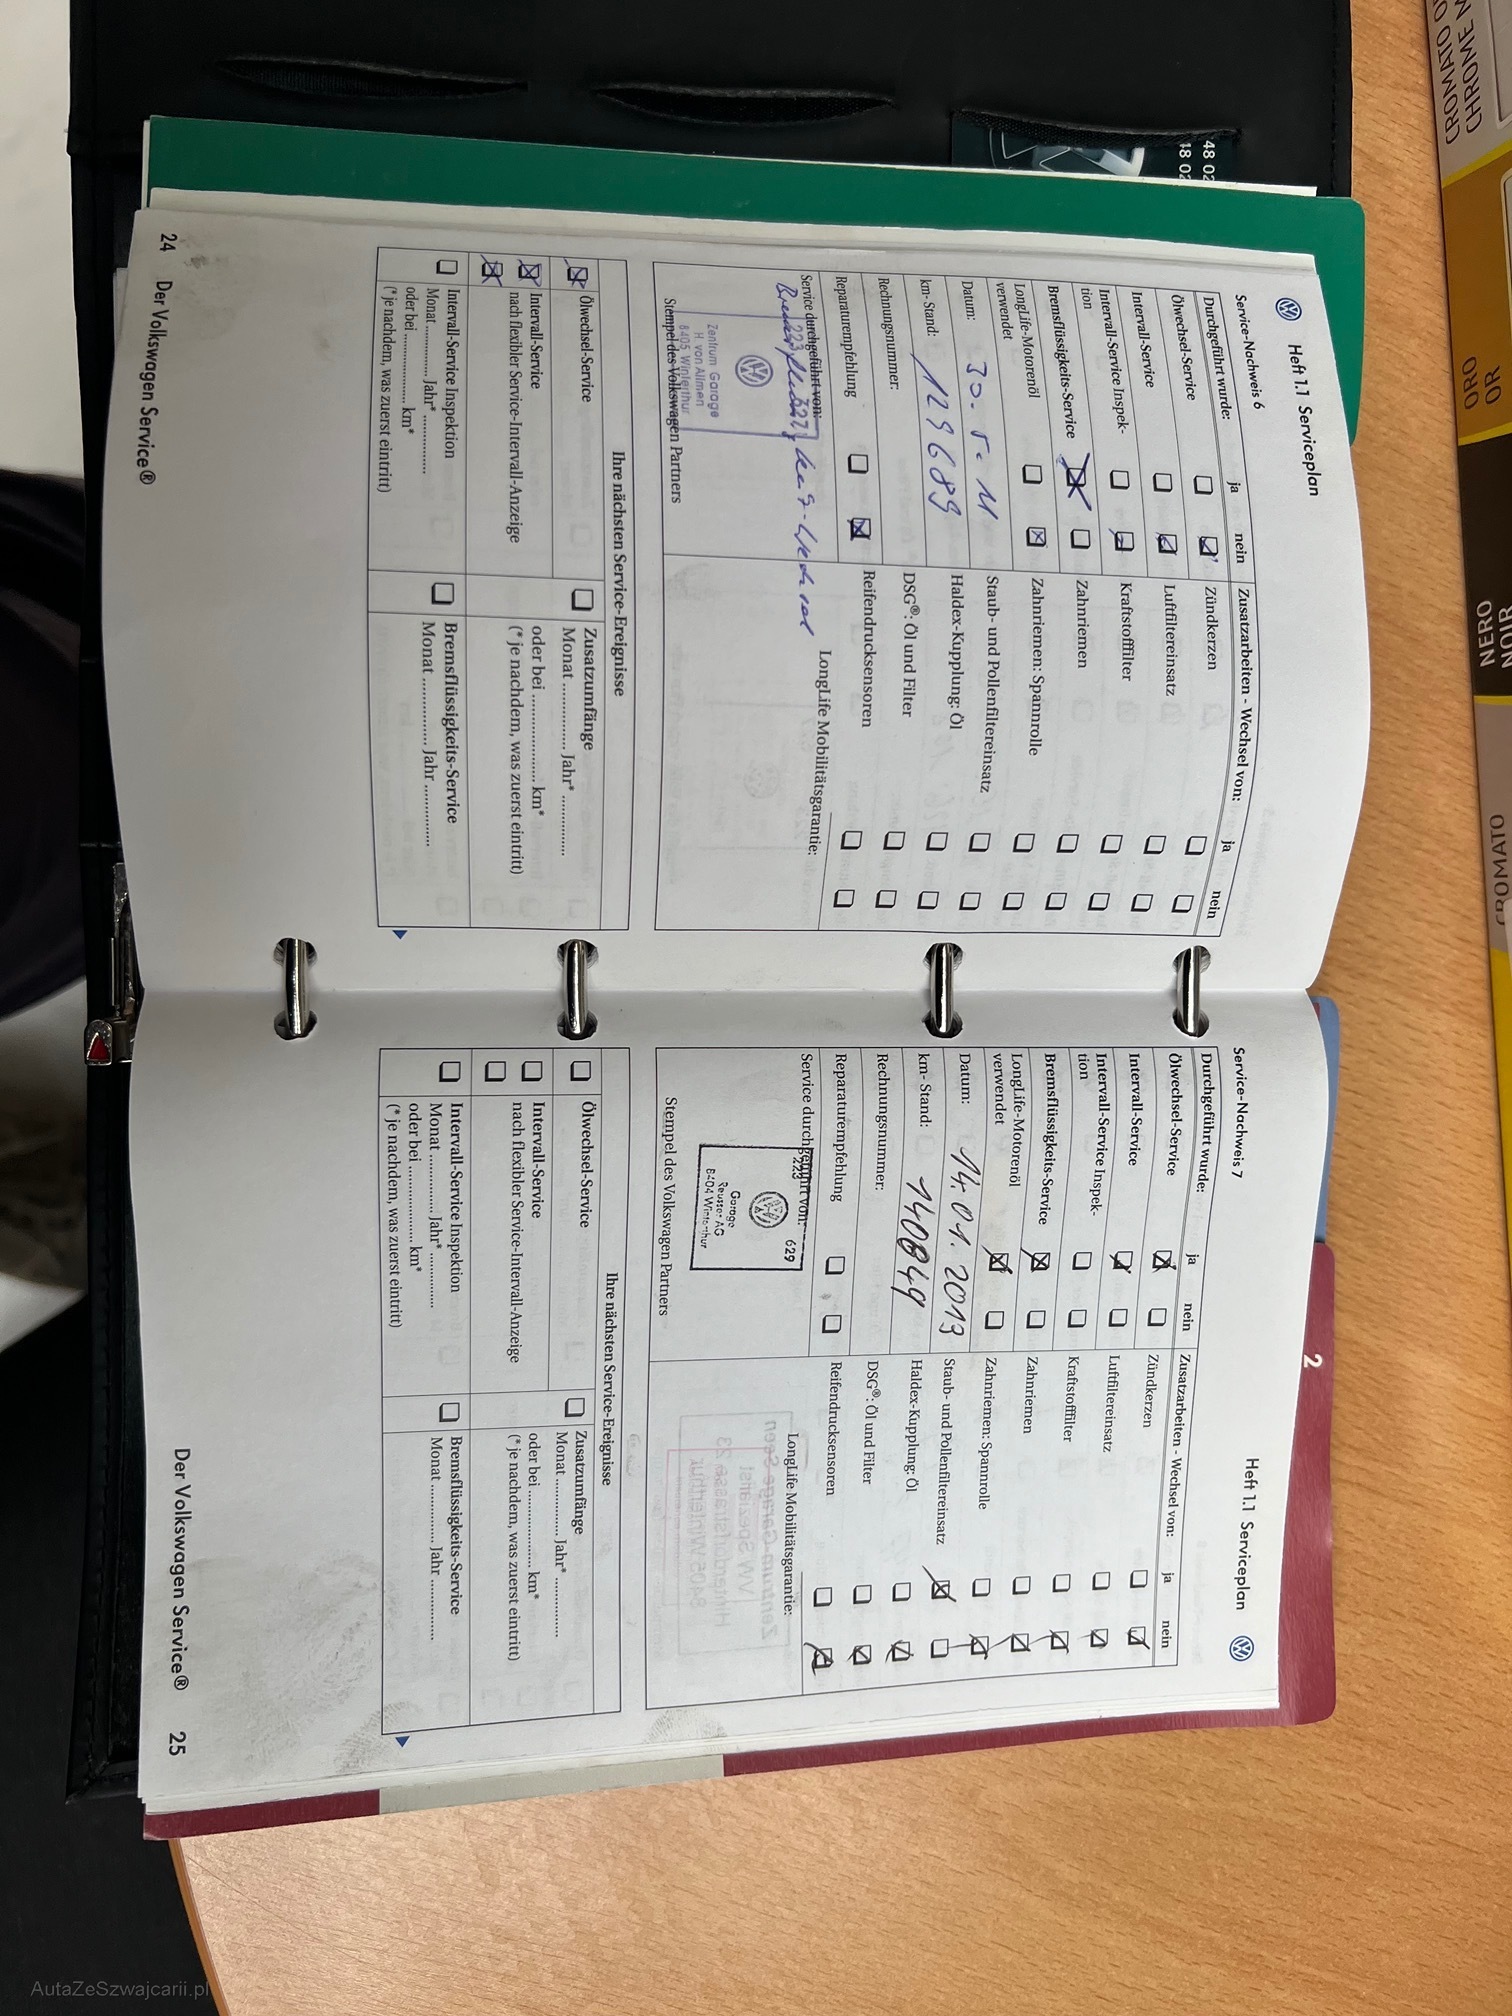 Heft 1.1 Serviceplan
Service-Nachweis 6
Durchgeführt wurde: ja nein
Ölwechsel-Service
Intervall-Service
Intervall-Service Inspek-
tion
Bremsflüssigkeits-Service
LongLife-Motorenöl
verwendet
Datum: 30. 5. 11
km- Stand: 129689
Rechnungsnummer:
Reparaturempfehlung
Service durchgeführt von:
Zentrum Garage
H. von Allmen
8405 Winterthur
Stempel des Volkswagen Partners
Zusatzarbeiten - Wechsel von: ja nein
Zündkerzen
Luftfiltereinsatz
Kraftstofffilter
Zahnriemen
Zahnriemen: Spannrolle
Staub- und Pollenfiltereinsatz
Haldex-Kupplung: Öl
DSG®: Öl und Filter
Reifendrucksensoren
LongLife Mobilitätsgarantie:
Ihre nächsten Service-Ereignisse
Ölwechsel-Service
Intervall-Service
nach flexibler Service-Intervall-Anzeige
Intervall-Service Inspektion
Monat ............ Jahr* ............
oder bei ................ km*
(* je nachdem, was zuerst eintritt)
Zusatzumfänge
Monat ............ Jahr* ............
oder bei ................ km*
(* je nachdem, was zuerst eintritt)
Bremsflüssigkeits-Service
Monat ............ Jahr ............
24 Der Volkswagen Service®
Heft 1.1 Serviceplan
Service-Nachweis 7
Durchgeführt wurde: ja nein
Ölwechsel-Service
Intervall-Service
Intervall-Service Inspek-
tion
Bremsflüssigkeits-Service
LongLife-Motorenöl
verwendet
Datum: 14. 01. 2013
km- Stand: 140849
Rechnungsnummer:
Reparaturempfehlung
Service durchgeführt von:
223 629
Garage
Reusser AG
8404 Winterthur
Stempel des Volkswagen Partners
Zusatzarbeiten - Wechsel von: ja nein
Zündkerzen
Luftfiltereinsatz
Kraftstofffilter
Zahnriemen
Zahnriemen: Spannrolle
Staub- und Pollenfiltereinsatz
Haldex-Kupplung: Öl
DSG®: Öl und Filter
Reifendrucksensoren
LongLife Mobilitätsgarantie:
Ihre nächsten Service-Ereignisse
Ölwechsel-Service
Intervall-Service
nach flexibler Service-Intervall-Anzeige
Intervall-Service Inspektion
Monat ............ Jahr* ............
oder bei ................ km*
(* je nachdem, was zuerst eintritt)
Zusatzumfänge
Monat ............ Jahr* ............
oder bei ................ km*
(* je nachdem, was zuerst eintritt)
Bremsflüssigkeits-Service
Monat ............ Jahr ............
Der Volkswagen Service® 25
2
48 02
48 02
CHROME
ORO
OR
NERO
NOIR
CROMATO
AutaZeSzwajcarii.pl